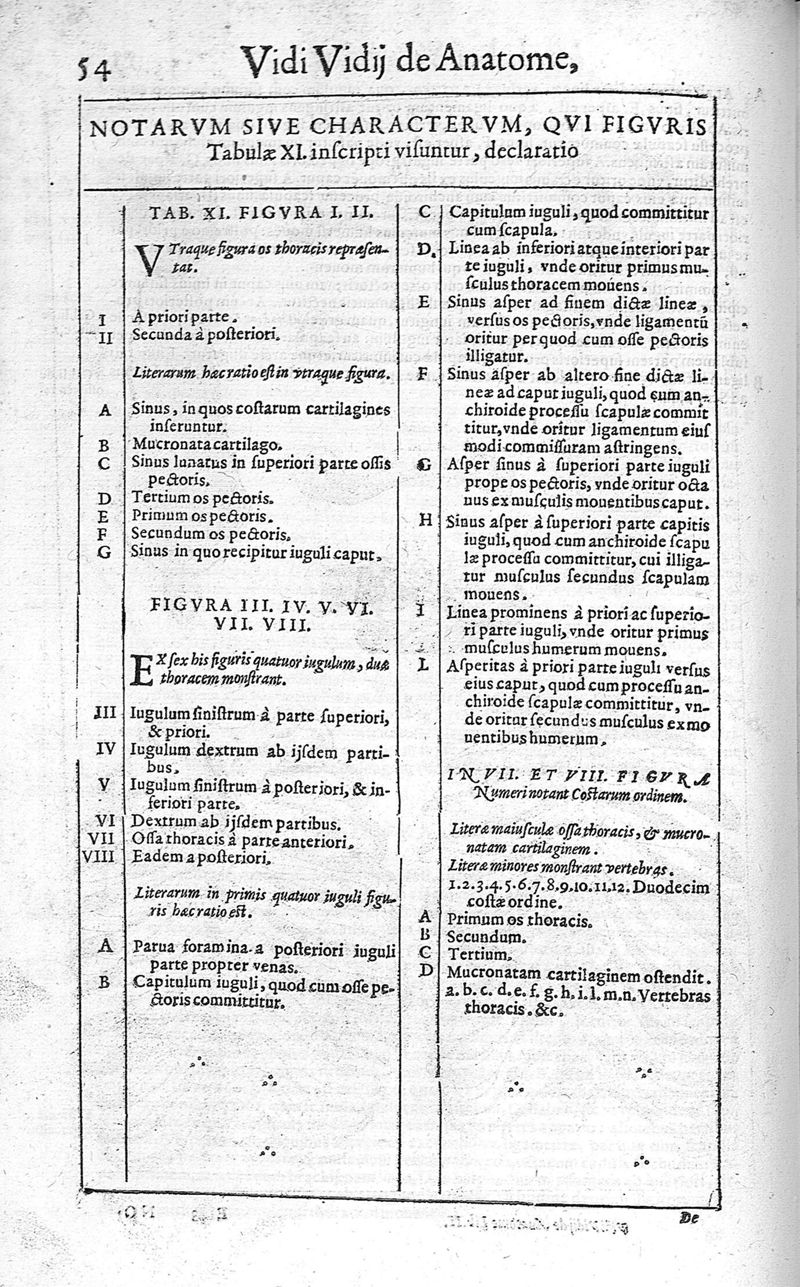 54
Vidi Vidij de Anatome,
NOTARVM SIVE CHARACTERVM, QVI FIGVRIS
Tabulæ XI. inſcripti viſuntur, declaratio
TAB. XI. FIGVRA I. II.
VTraque figura os thoracis repræſen-
tat.
I A priori parte.
II Secunda à poſteriori.
Literarum hæc ratio eſt in vtraque figura.
A Sinus, in quos coſtarum cartilagines
inſeruntur.
B Mucronata cartilago.
C Sinus lunatus in ſuperiori parte oſſis
pectoris.
D Tertium os pectoris.
E Primum os pectoris.
F Secundum os pectoris.
G Sinus in quo recipitur iuguli caput.
FIGVRA III. IV. V. VI.
VII. VIII.
EX ſex his figuris quatuor iugulum, duæ
thoracem monſtrant.
III Iugulum ſiniſtrum à parte ſuperiori,
& priori.
IV Iugulum dextrum ab ijſdem parti-
bus.
V Iugulum ſiniſtrum à poſteriori, & in-
feriori parte.
VI Dextrum ab ijſdem partibus.
VII Oſſa thoracis à parte anteriori.
VIII Eadem a poſteriori.
Literarum in primis quatuor iuguli figu-
ris hæc ratio eſt.
A Parua foramina a poſteriori iuguli
parte propter venas.
B Capitulum iuguli, quod cum oſſe pe-
ctoris committitur.
C Capitulum iuguli, quod committitur
cum ſcapula.
D. Linea ab inferiori atque interiori par
te iuguli, vnde oritur primus mu-
ſculus thoracem mouens.
E Sinus aſper ad finem dictæ lineæ,
verſus os pectoris, vnde ligamentũ
oritur per quod cum oſſe pectoris
illigatur.
F Sinus aſper ab altero fine dictæ li-
neæ ad caput iuguli, quod cum an-
chiroide proceſſu ſcapulæ commit
titur, vnde oritur ligamentum eiuſ
modi commiſſuram aſtringens.
G Aſper ſinus à ſuperiori parte iuguli
prope os pectoris, vnde oritur octa
uus ex muſculis mouentibus caput.
H Sinus aſper à ſuperiori parte capitis
iuguli, quod cum anchiroide ſcapu
læ proceſſu committitur, cui illiga-
tur muſculus ſecundus ſcapulam
mouens.
I Linea prominens à priori ac ſuperio-
ri parte iuguli, vnde oritur primus
muſculus humerum mouens.
L Aſperitas à priori parte iuguli verſus
eius caput, quod cum proceſſu an-
chiroide ſcapulæ committitur, vn-
de oritur ſecundus muſculus ex mo
uentibus humerum.
IN VII. ET VIII. FIGVRA
Numeri notant Coſtarum ordinem.
Literæ maiuſculæ oſſa thoracis, & mucro-
natam cartilaginem.
Literæ minores monſtrant vertebras.
1.2.3.4.5.6.7.8.9.10.11.12. Duodecim
coſtæ ordine.
A Primum os thoracis.
B Secundum.
C Tertium.
D Mucronatam cartilaginem oſtendit.
a. b. c. d. e. f. g. h. i. l. m. n. Vertebras
thoracis. &c.
De